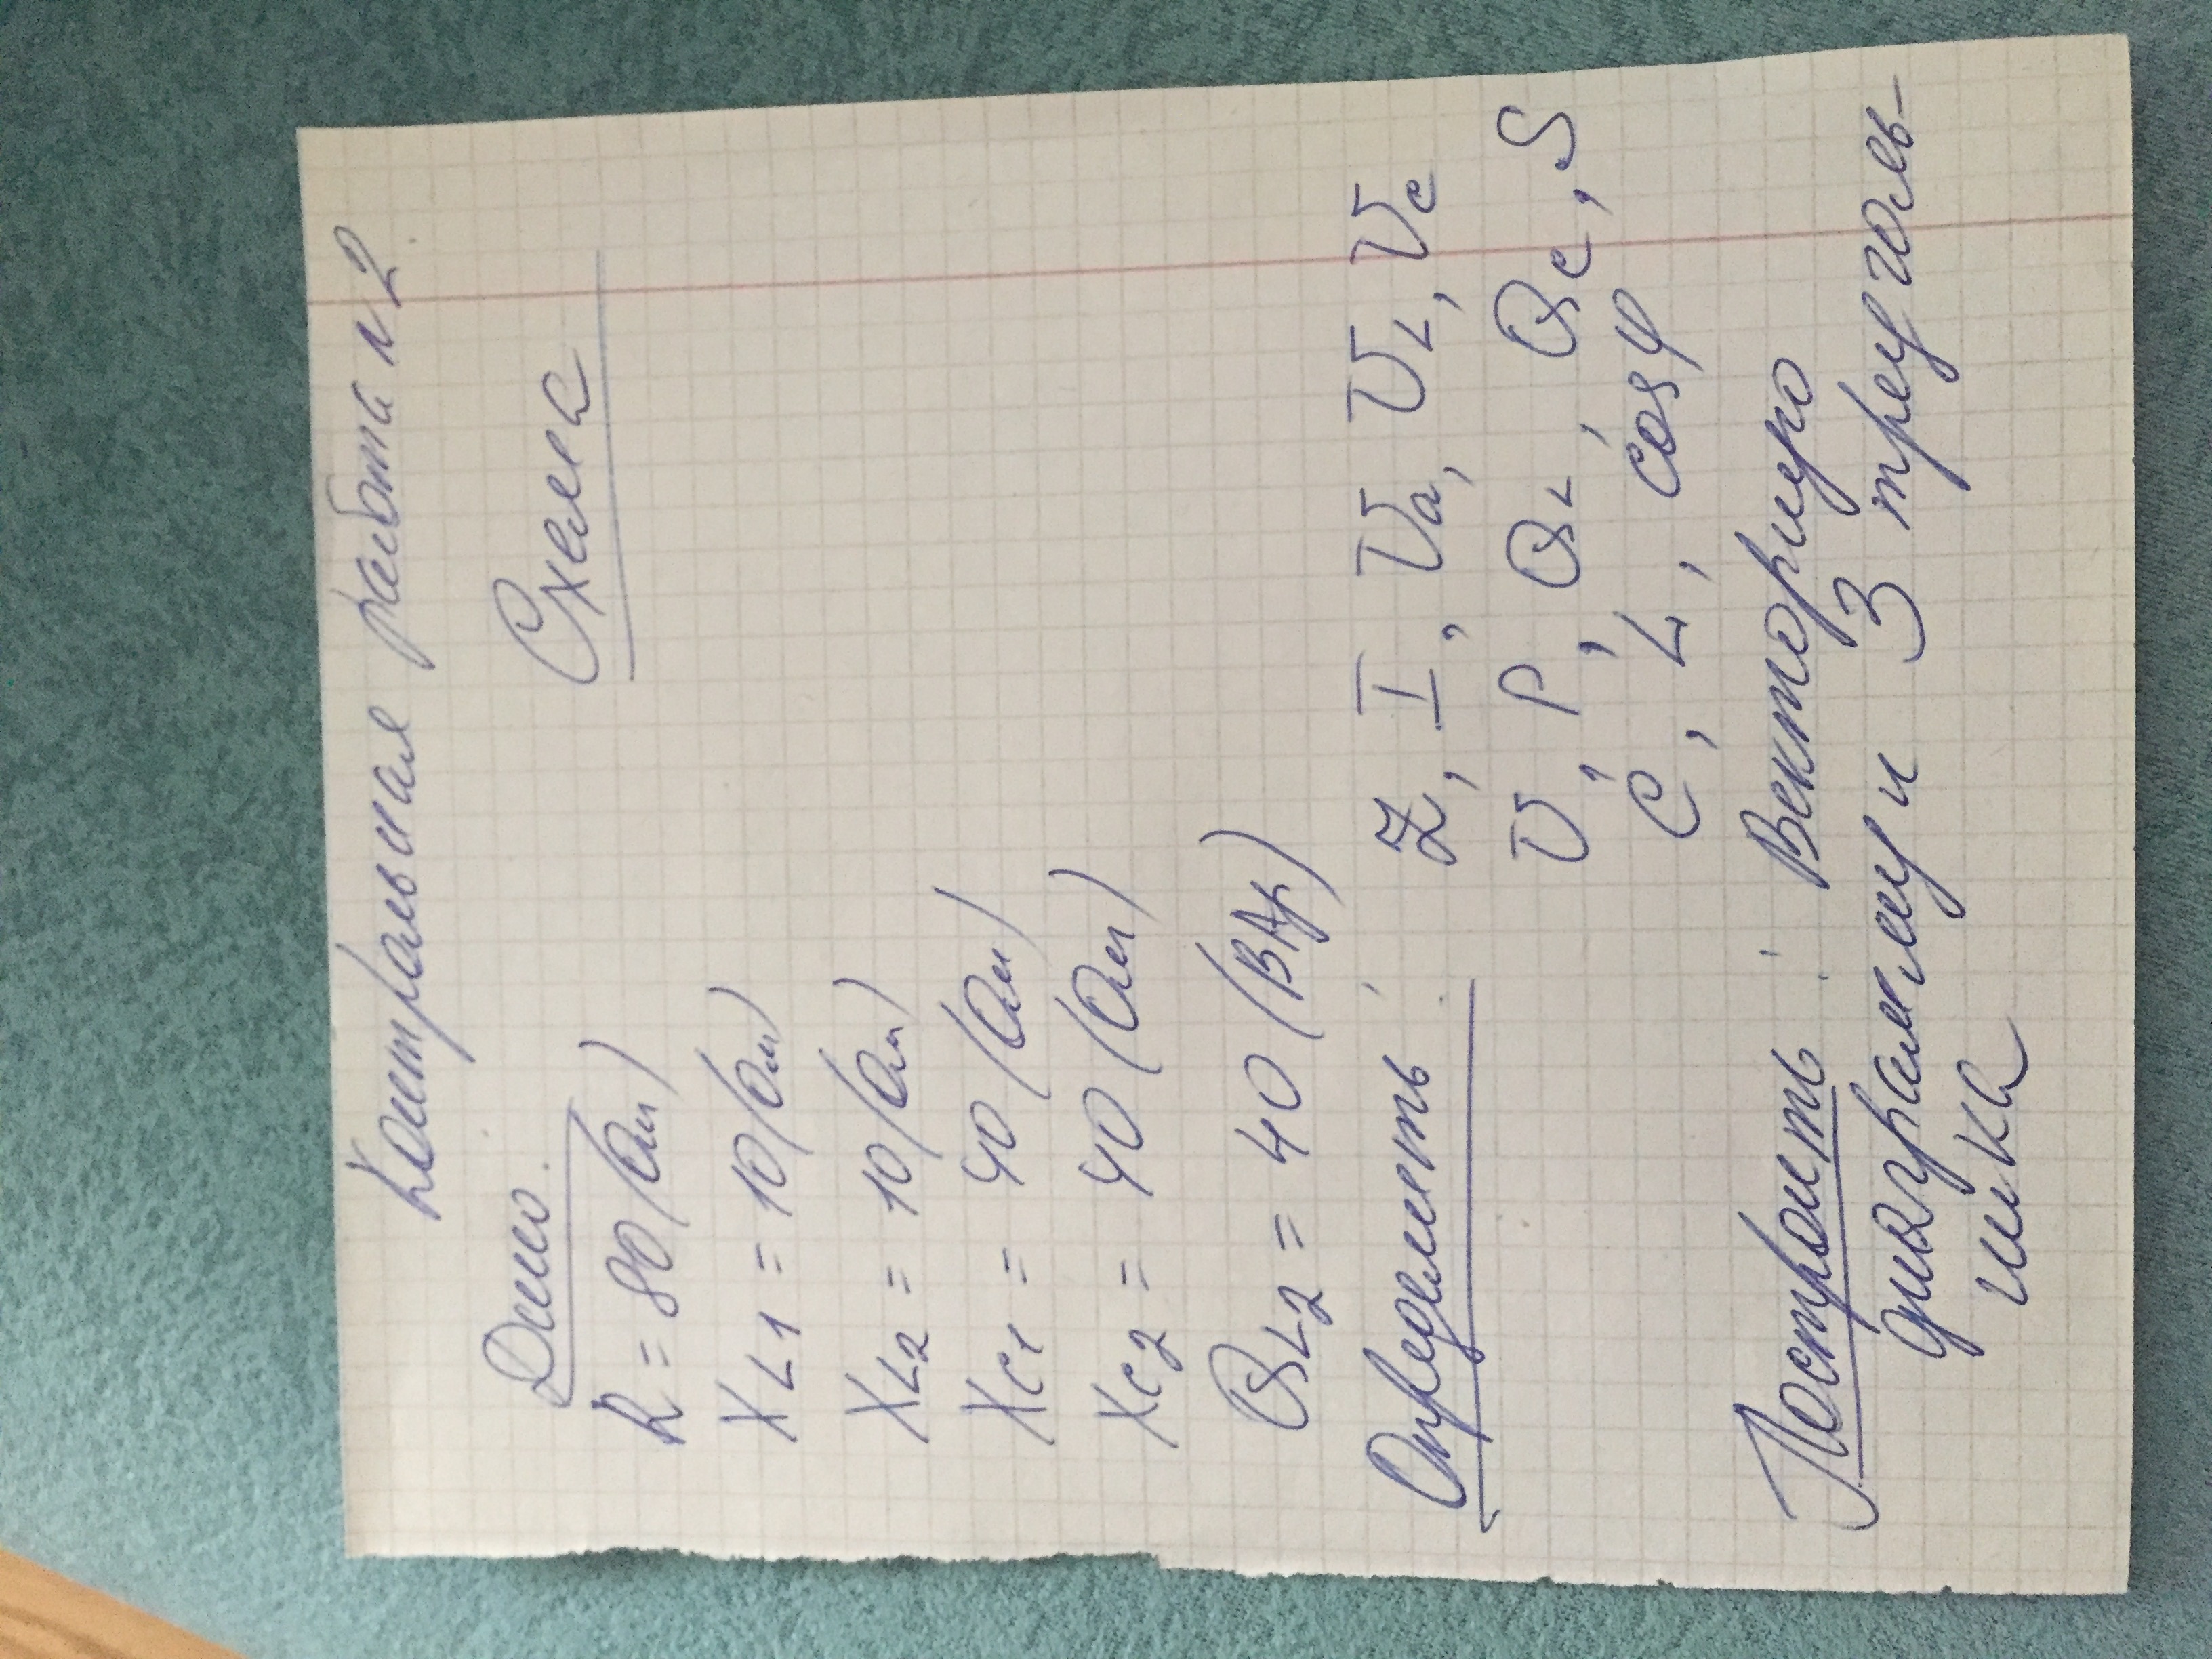 Контрольная работа N2
Дано.
Схема
R = 80 (Ом)
XL1 = 10 (Ом)
XL2 = 10 (Ом)
XC1 = 40 (Ом)
XC2 = 40 (Ом)
QL2 = 40 (ВАр)
Определить: Z, I, Ua, UL, Uc
U, P, QL, Qc, S
C, L, cos φ
Построить: Векторную
диаграмму и 3 треуголь-
ника